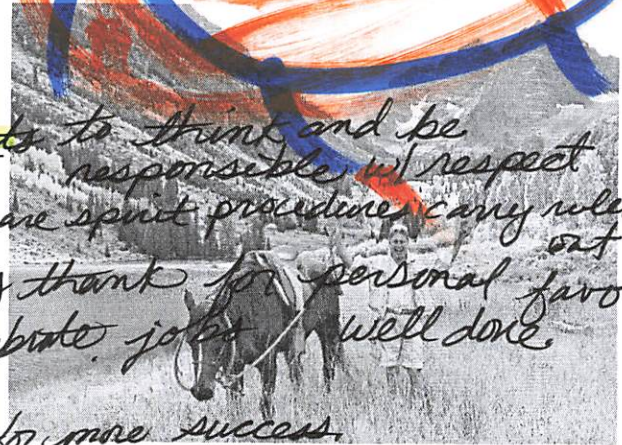 to think and be
responsible w/ respect
are spirit procedures carry rule
out
thank for personal favo
brate jobs well done
for more success.